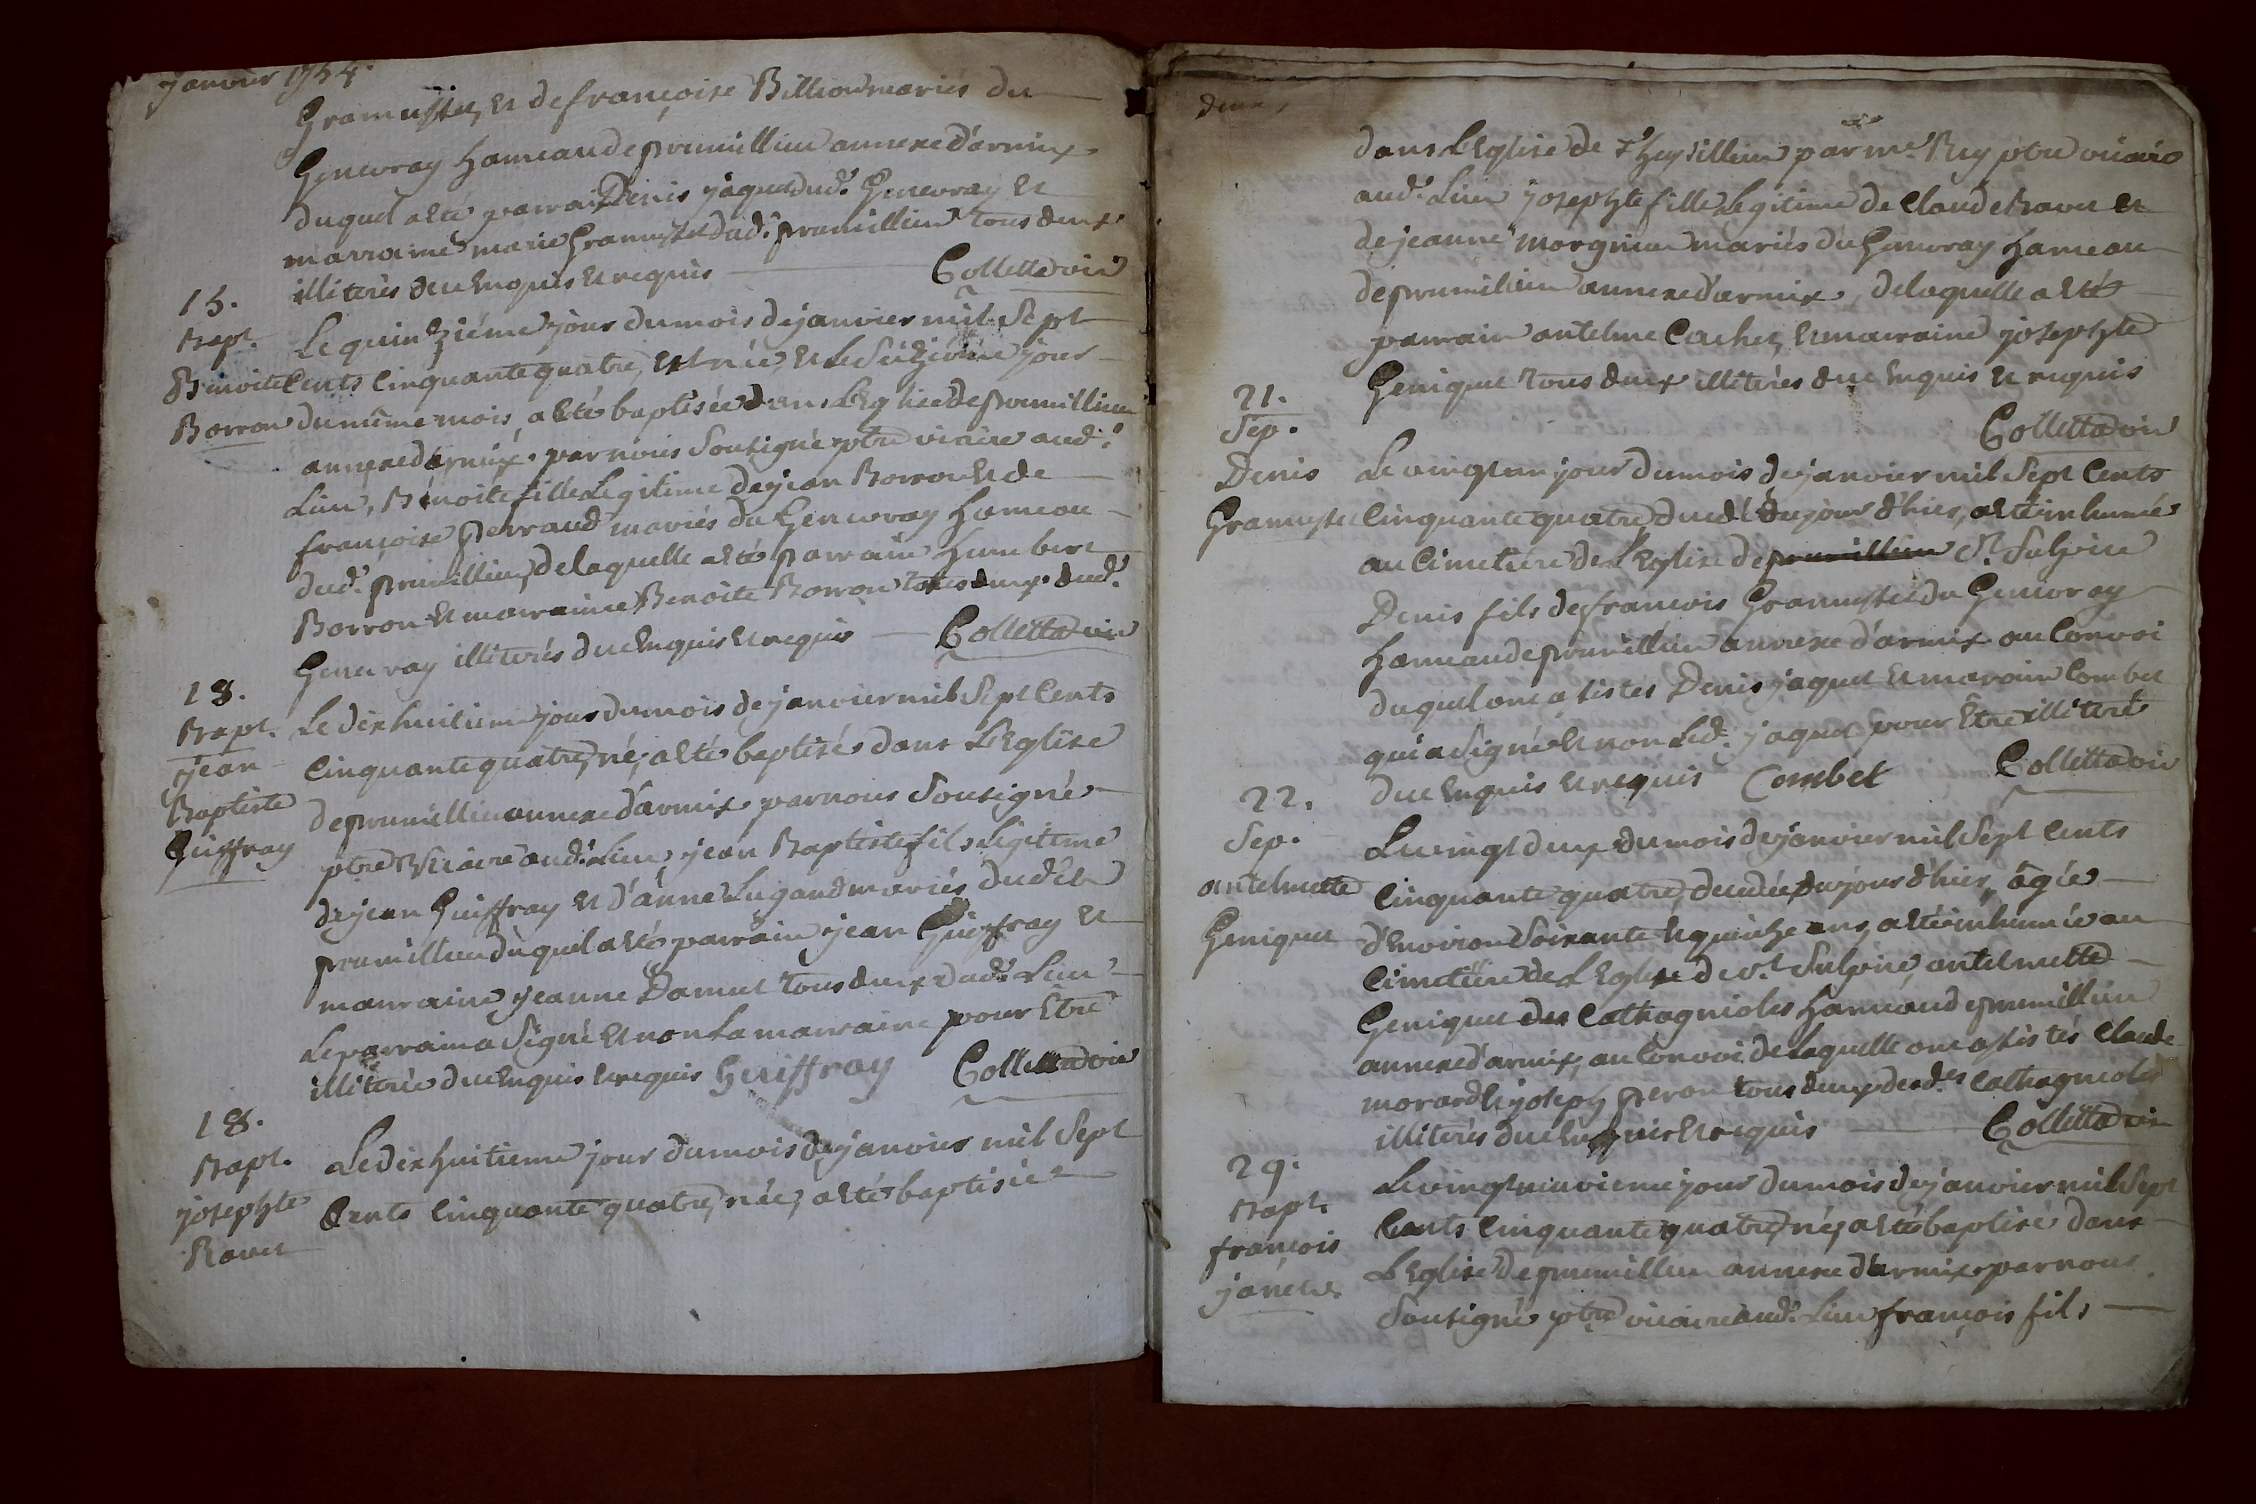 janvier 1754.
Gramusset, et de françoise Billion mariés du
Genevray hameau de prumillieu annexe d'armix
duquel a eté parrain Denis jaquet dud.t Genevray et
marraine marie Gramusset dud.t prumillieu tous deux
illiterés de ce enquis et requis Colletta vic
15.
Bapt.
Benoite
Borron
Le quinziéme jour du mois de janvier mil Sept
Cents Cinquante quatre, est née, et Le Seizième jour
du même mois, a eté baptisée dans L'Eglise de prumillieu
annexe d'armix par nous Sousigné ptre vicaire aud.t
Lieu, Benoite fille Legitime de jean Borron et de
françoise perraud mariés du Genevray hameau
dud.t prumillieu, de laquelle a eté parrain humbert
Borron et marraine Benoite Borron tous deux dud.t
Genevray illiterés de ce enquis et requis Colletta vic
18.
Bapt.
jean
Baptiste
Guiffray
Le dix huitieme jour du mois de janvier mil Sept Cents
Cinquante quatre, né, a eté baptisé dans L'Eglise
de prumillieu annexe d'armix par nous Sousigné
ptre vicaire aud.t Lieu, jean Baptiste fils Legitime
de jean Guiffray et d'anne Lugand mariés dudit
prumillieu duquel a eté parrain jean Guiffray et
marraine jeanne Damet tous deux dud.t Lieu
Le parrain a Signé et non La marraine pour Etre
illiterée de ce enquis et requis Guiffray Colletta vic
18.
Bapt.
josephte
Ravet
Le dix huitieme jour du mois de janvier mil Sept
Cents Cinquante quatre, née, a eté baptisée
deux
dans L'Eglise de par m.e Rey ptre vicaire
aud.t Lieu josephte fille Legitime de Claude Ravet et
de jeanne mariés du Genevray hameau
de prumillieu annexe d'armix, de laquelle a eté
parrain antelme Cachet, et marraine josephte
Genique tous deux illiterés de ce enquis et requis
Colletta vic
21.
Sep.
Denis
Gramusset
Le vingt un jour du mois de janvier mil Sept Cents
Cinquante quatre, du jour d'hier, a eté inhumé
au Cimetiére de L'Eglise de prumillieu S.t Sulpice
Denis fils de francois Gramusset du Genevray
hameau de prumillieu annexe d'armix au Convoi
duquel ont assistes Denis jaquet et Combet
qui a Signé et non Led.t jaquet pour Etre illiteré
de ce enquis et requis Combet Colletta vic
22.
Sep.
antelmette
Geniquet
Le vingt deux du mois de janvier mil Sept Cents
Cinquante quatre, decedée du jour d'hier, âgée
d'Environ Soixante et quinze ans, a eté inhumée au
Cimetiére de L'Eglise de S.t Sulpice, antelmette
Geniquet des Catthagnioles hameau de prumillieu
annexe d'armix, au Convoi de Laquelle ont assistés Claude
morard et joseph peron tous deux desd.ts Catthagnioles
illiterés de ce enquis et requis Colletta vic
29.
Bapt.
françois
Le vingt neuvieme jour du mois de janvier mil Sept
Cents Cinquante quatre, né, a eté baptisé dans
L'Eglise de prumillieu annexe d'armix par nous
Sousigné ptre vicaire aud.t Lieu françois fils